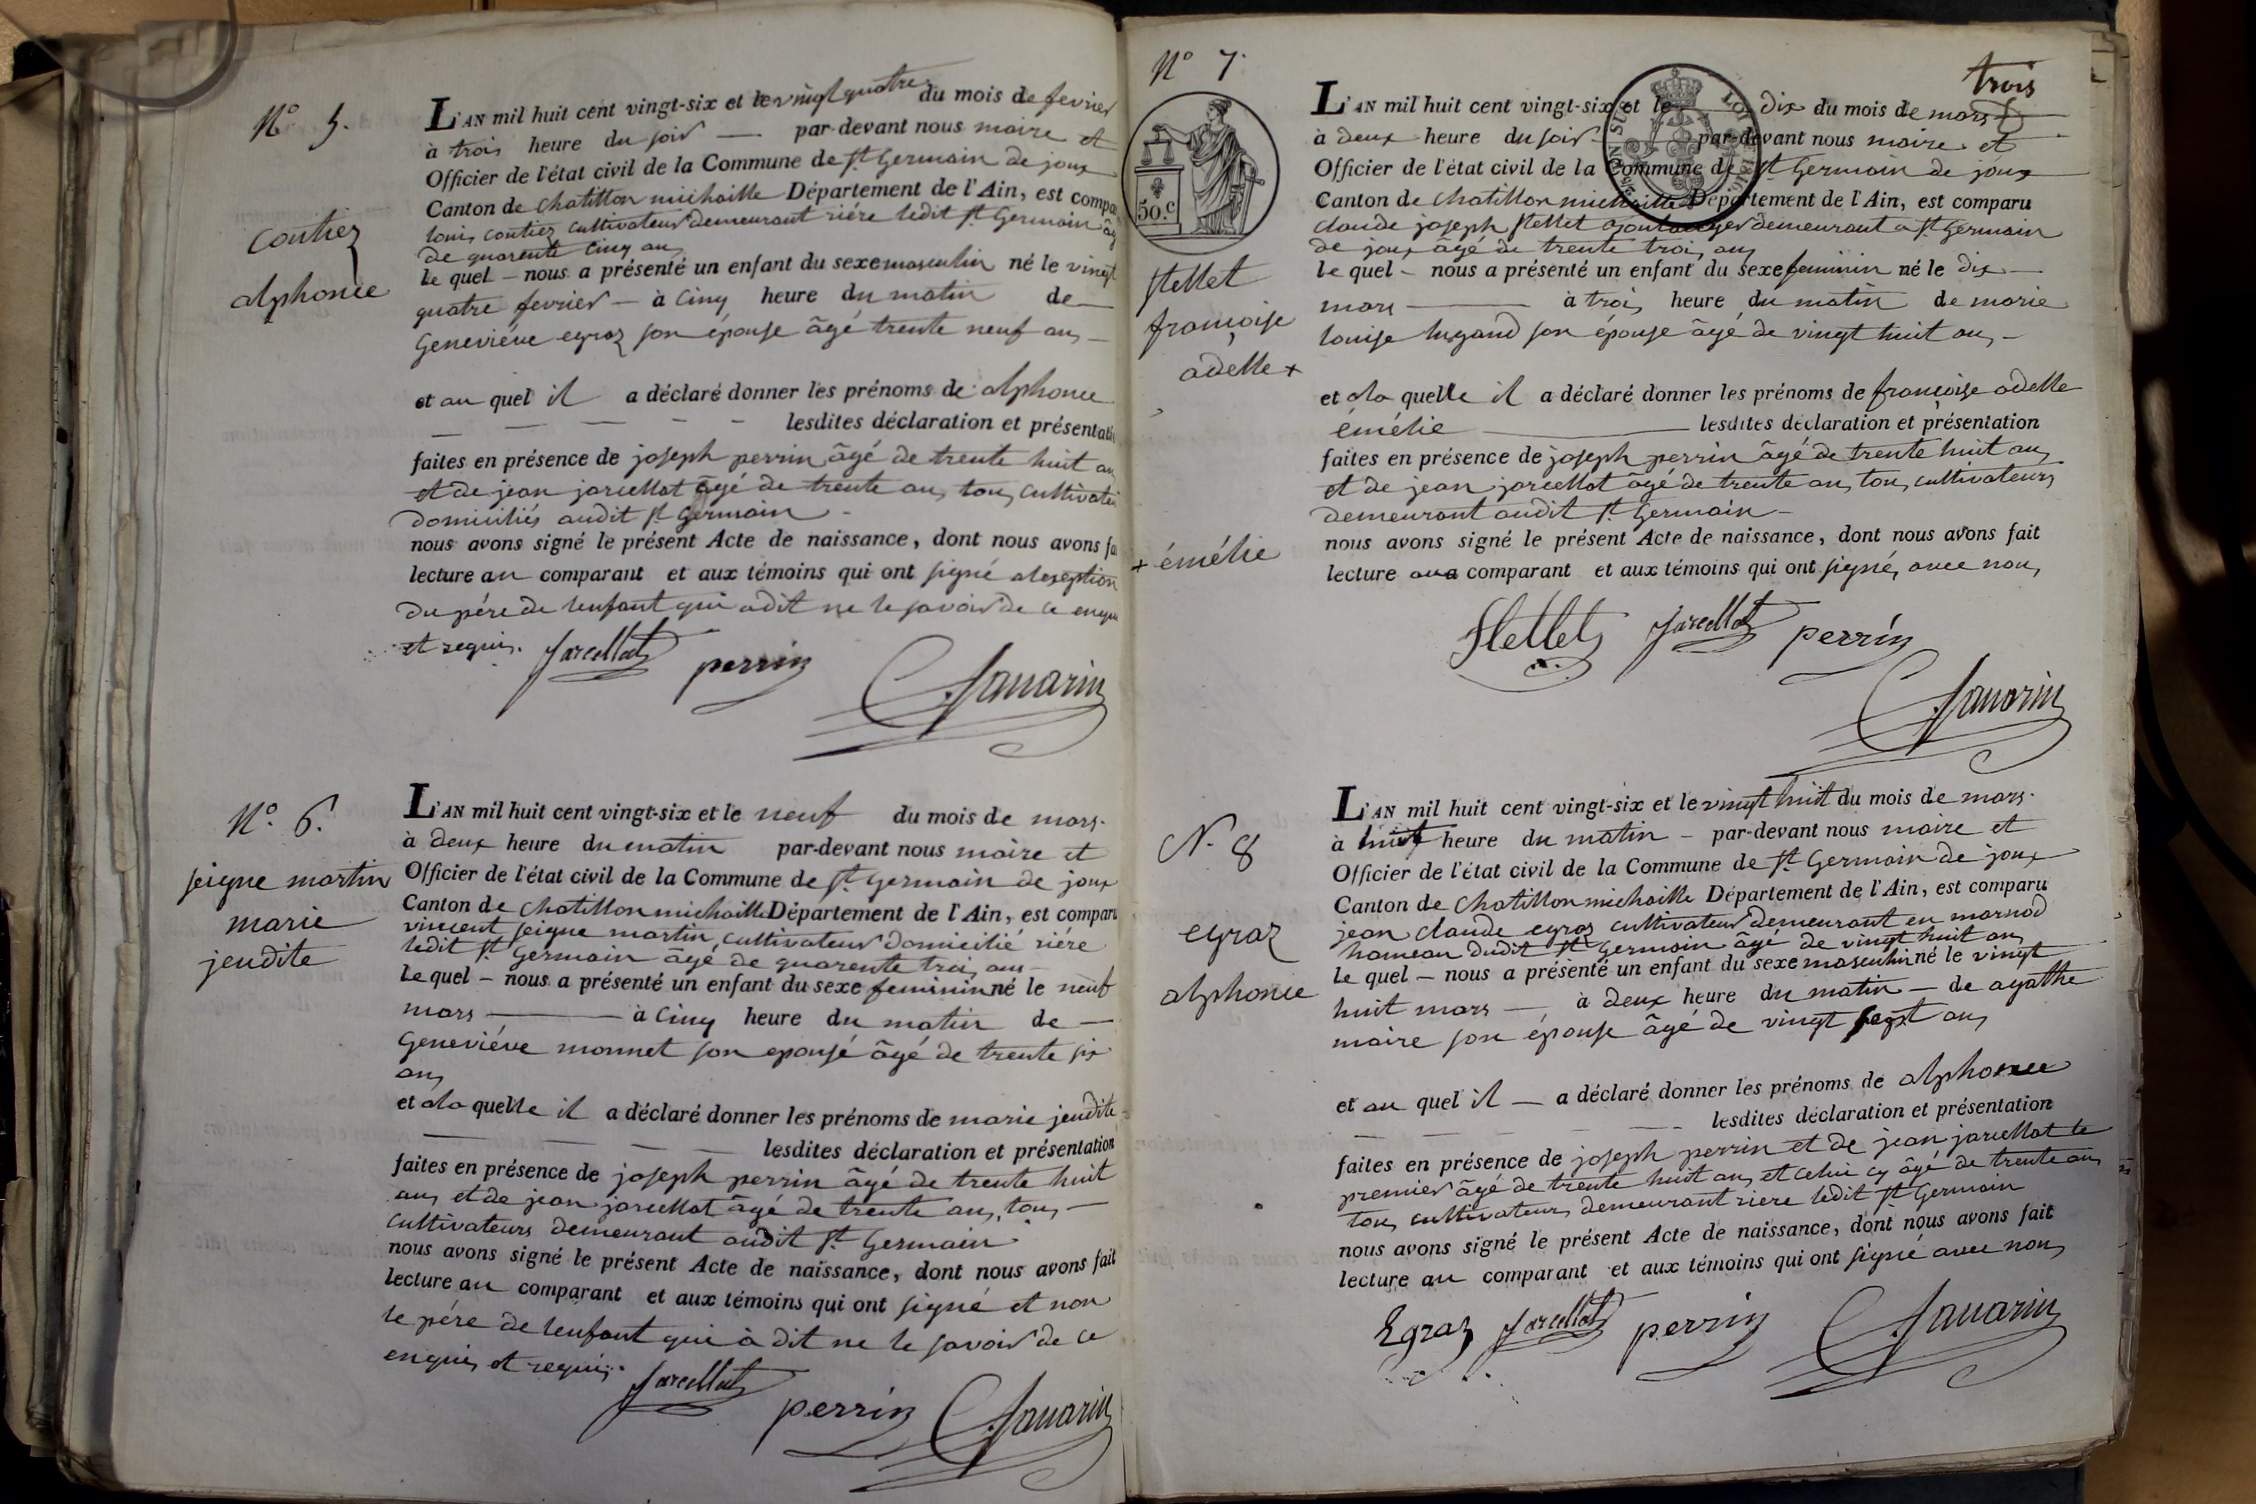 N° 5.
contiez
alphonce
L'AN mil huit cent vingt-six et le vingt quatre du mois de fevrier
à trois heure du soir par-devant nous maire et
Officier de l'état civil de la Commune de St Germain de joux
Canton de chatillon michaille Département de l'Ain, est compa
louis contiez cultivateur demeurant riére ledit St Germain âg
de quarente cinq ans
le quel – nous a présenté un enfant du sexe masculin né le vingt
quatre fevrier – à cinq heure du matin de
Geneviéve egraz son épouse âgé trente neuf ans –
et au quel il a déclaré donner les prénoms de alphonce
lesdites déclaration et présentati
faites en présence de joseph perrin âgé de trente huit an
et de jean jarcellat âgé de trente ans, tous cultivate
domiciliés audit St Germain –
nous avons signé le présent Acte de naissance, dont nous avons fa
lecture au comparant et aux témoins qui ont signé alexeption
du pére de lenfant qui a dit ne le savoir de ce enqui
et requis. Jarcellat perrin Savarin
N°. 6.
seigne martin
marie
jeudite
L'AN mil huit cent vingt-six et le neuf du mois de mars.
à deux heure du matin par-devant nous maire et
Officier de l'état civil de la Commune de St Germain de joux
Canton de chatillon michaille Département de l'Ain, est comparu
vincent seigne martin, cultivateur domicilié riére
ledit St Germain âgé de quarente trois ans –
le quel – nous a présenté un enfant du sexe feminin né le neuf
mars à cinq heure du matin de –
Geneviéve monnet son epousé âgé de trente six
ans
et ala quelle il a déclaré donner les prénoms de marie jeudite
lesdites déclaration et présentation
faites en présence de joseph perrin âgé de trente huit
ans et de jean jarcellat âgé de trente ans, tous –
cultivateurs demeurant audit St Germain.
nous avons signé le présent Acte de naissance, dont nous avons fait
lecture au comparant et aux témoins qui ont signé et non
le pére de lenfant qui à dit ne le savoir de ce
enquis et requis. Jarcellat
perrin Savarin
trois
N° 7.
50.c
Stellet
françoise
adelle +
+ émélie
L'AN mil huit cent vingt-six et le dix du mois de mars
à deux heure du soir par-devant nous maire et
Officier de l'état civil de la Commune de St Germain de joux
Canton de chatillon michaille Département de l'Ain, est comparu
claude joseph Stellet demeurant a St Germain
de joux âgé de trente trois ans
le quel – nous a présenté un enfant du sexe feminin né le dix –
mars à trois heure du matin de marie
louise lugand son épouse âgé de vingt huit ans –
et ala quelle il a déclaré donner les prénoms de françoise adelle
émélie lesdites déclaration et présentation
faites en présence de joseph perrin âgé de trente huit ans
et de jean jarcellat âgé de trente ans, tous cultivateurs
demeurant audit St Germain –
nous avons signé le présent Acte de naissance, dont nous avons fait
lecture au comparant et aux témoins qui ont signé, avec nous
Stellet Jarcellat perrin
Savarin
N. 8
egraz
alphonce
L'AN mil huit cent vingt-six et le vingt huit du mois de mars.
à huit heure du matin – par-devant nous maire et
Officier de l'état civil de la Commune de St Germain de joux
Canton de chatillon michaille Département de l'Ain, est comparu
jean claude egraz cultivateur demeurant en marnod
hameau dudit St Germain âgé de vingt huit ans
le quel – nous a présenté un enfant du sexe masculin né le vingt
huit mars – à deux heure du matin – de agathe
maire son épouse âgé de vingt sept ans
et au quel il – a déclaré donner les prénoms de alphonce
lesdites déclaration et présentation
faites en présence de joseph perrin et de jean jarcellat le
premier âgé de trente huit ans et celui cy âgé de trente ans
tous cultivateurs demeurant riere ledit St Germain
nous avons signé le présent Acte de naissance, dont nous avons fait
lecture au comparant et aux témoins qui ont signé avec nous
Egraz Jarcellat perrin Savarin